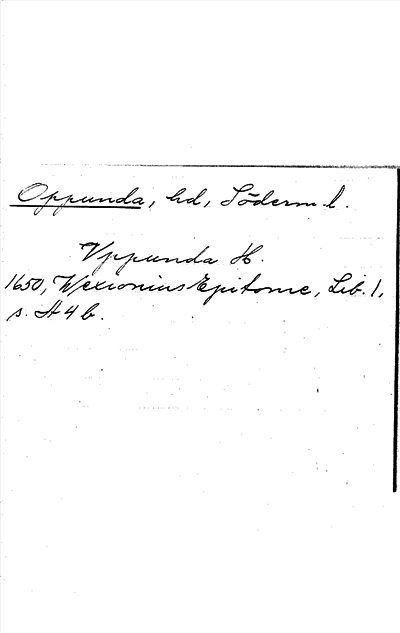 Oppunda, hd, Söderm. l.
Vppunda H.
1650, Wexionius Epitome, Lib. 1,
s. A 4 b.